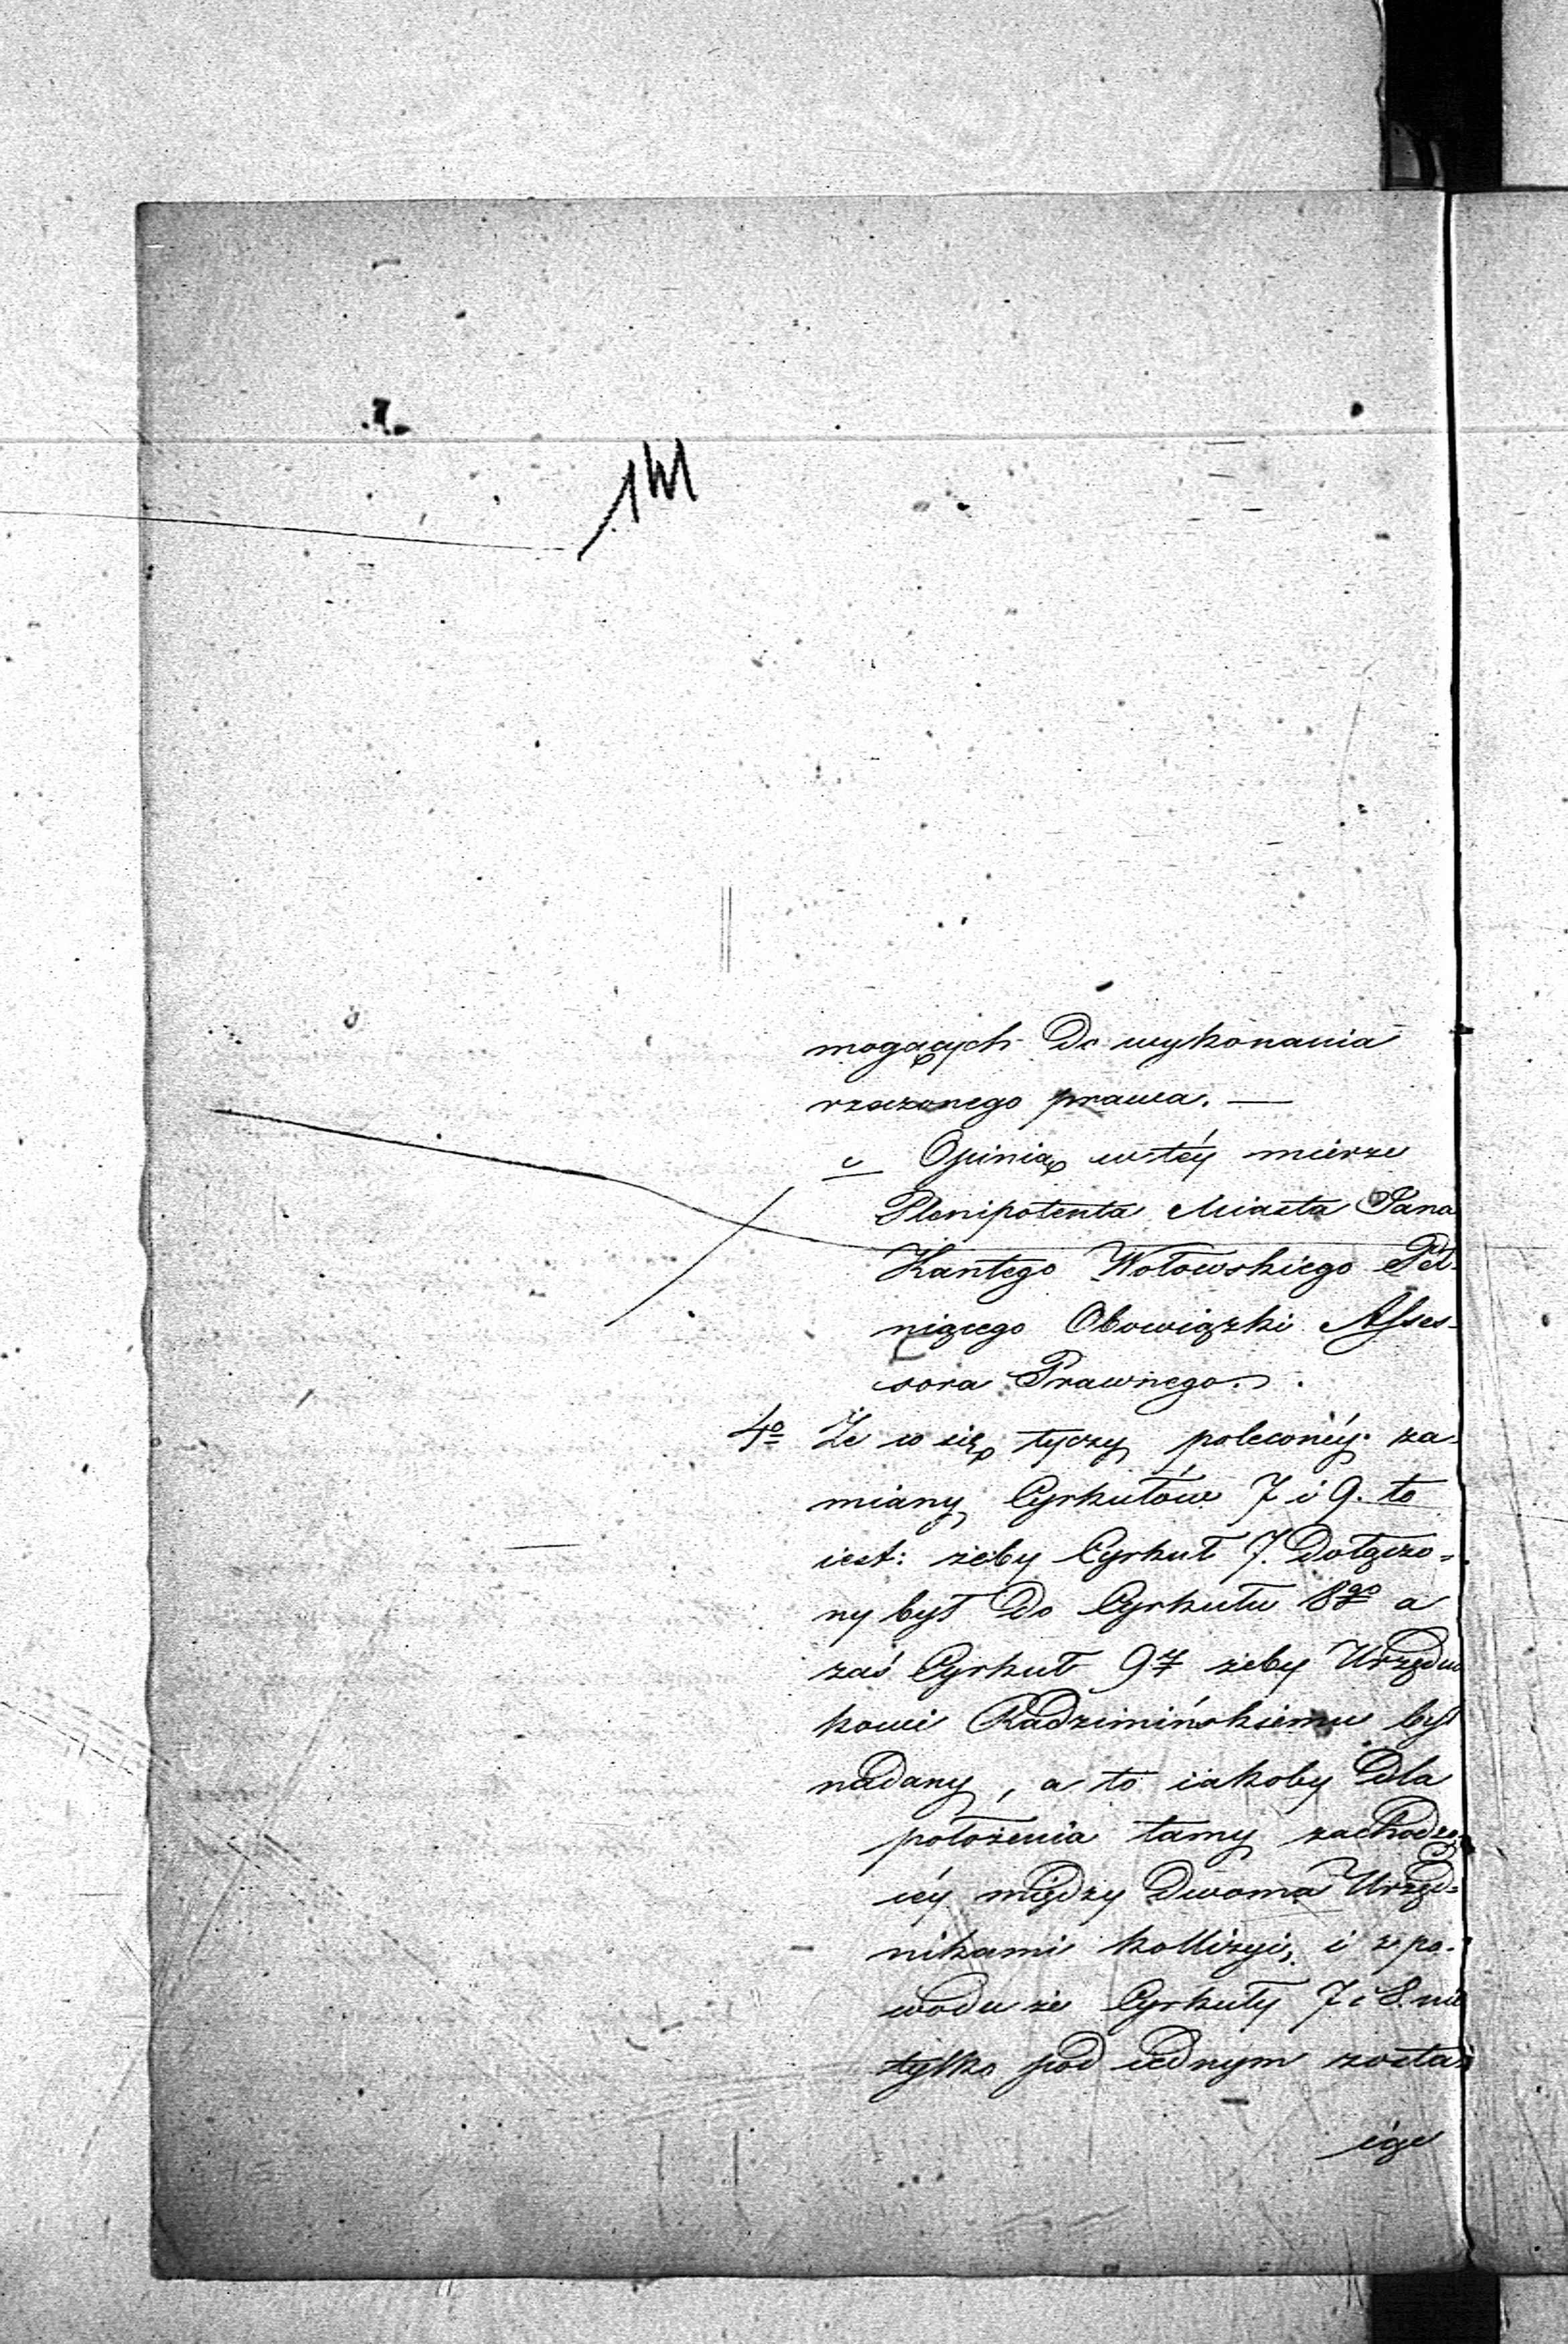 mogących do wykonania
rzeczonego prawa. —
c Opinią w téy mierze
Plenipotenta Miasta Pana
Kantego Wołowskiego Peł-
niącego Obowiązki Asses-
sora Prawnego.
4º Że co się tyczy poleconéy za-
miany Cyrkułów 7 i 9. to
iest: żeby Cyrkuł 7. dołączo-
ny był do Cyrkułu 8go a
zaś Cyrkuł 9ty żeby Urzędni
kowi Radzimińskiemu był
nadany, a to iakoby dla
położenia tamy zachodzą
céy między dwoma Urzęd-
nikami kollizyi, i z po-
wodu że Cyrkuły 7 i 8. nie
tylko pod iednym zosta-
iąc